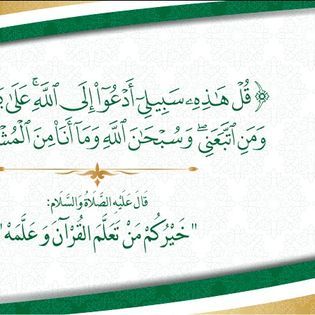 ﴿ قُلۡ هَٰذِهِۦ سَبِيلِيٓ أَدۡعُوٓاْ إِلَى ٱللَّهِۚ عَلَىٰ
وَمَنِ ٱتَّبَعَنِيۖ وَسُبۡحَٰنَ ٱللَّهِ وَمَآ أَنَا۠ مِنَ
قَالَ عَلَيْهِ الصَّلَاةُ وَالسَّلَام:
"خَيْرُكُمْ مَنْ تَعَلَّمَ القُرْآنَ وَعَلَّمَهْ"